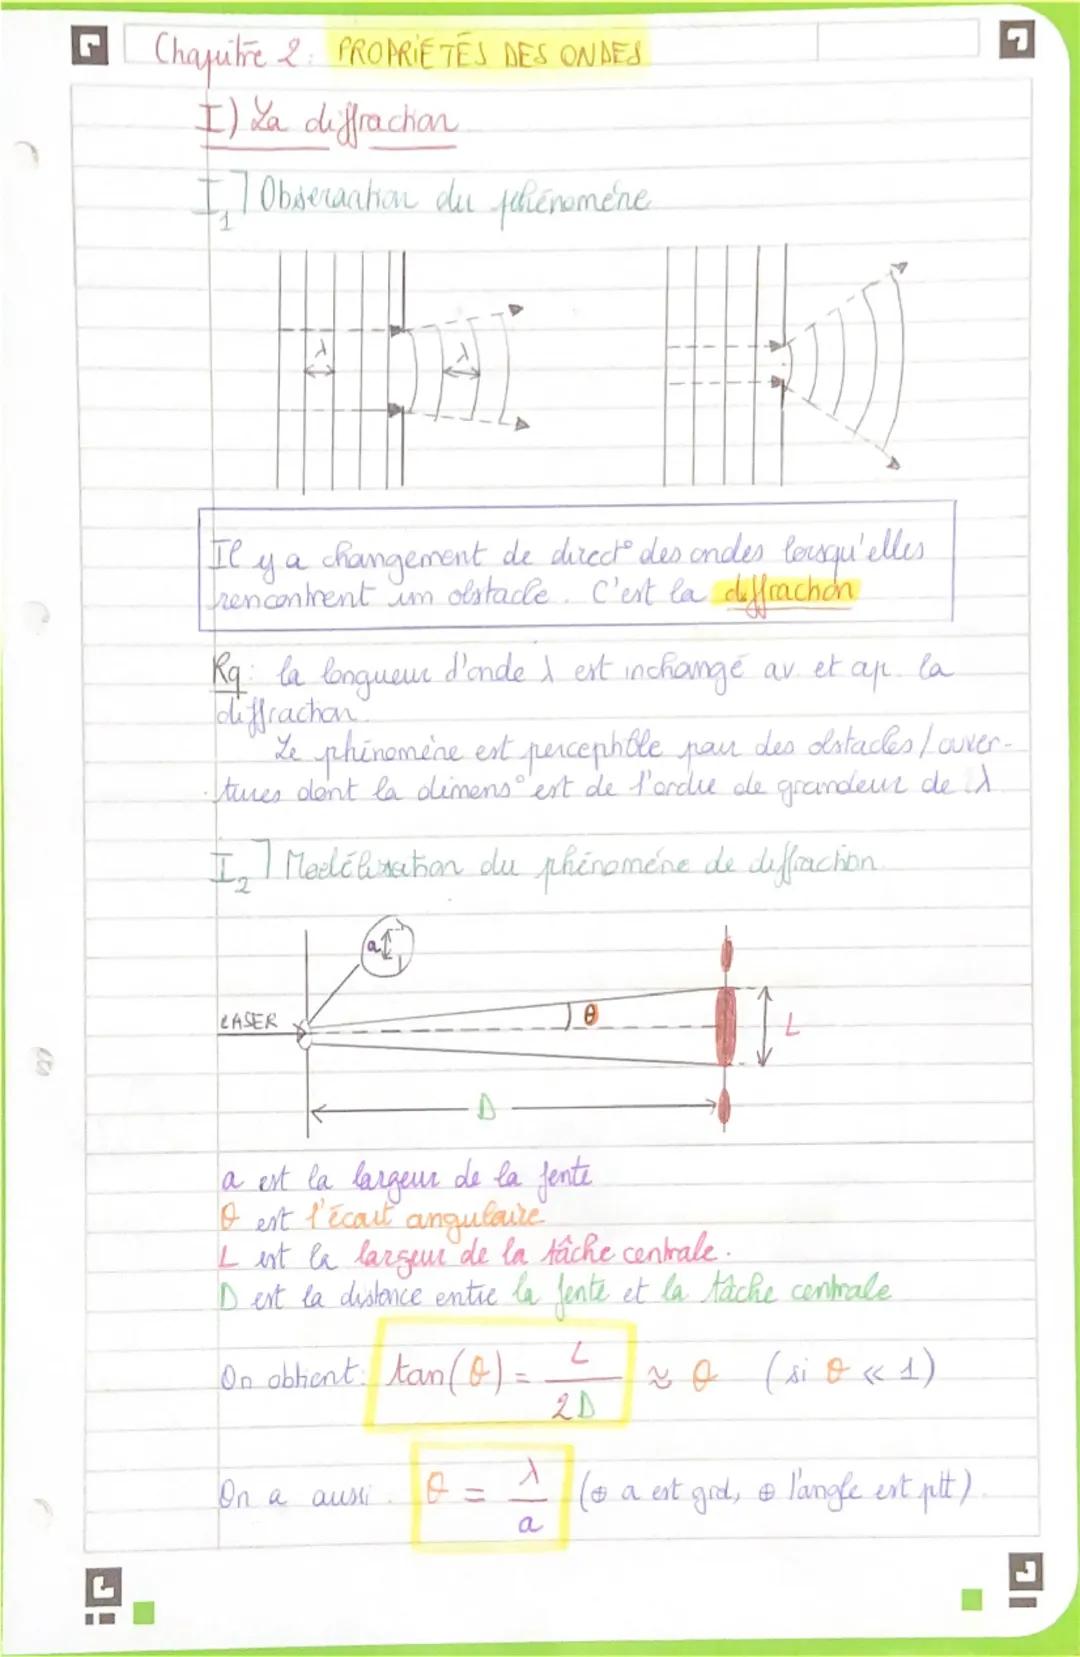 Chapitre 2: PROPRIÉTÉS DES ONDES
I) La diffraction
I1] Observation du phénomène
λ
λ
Il y a changement de direct° des ondes lorsqu'elles
rencontrent um obstacle. C'est la diffraction
Rq: la longueur d'onde λ est inchangé av. et ap. la
diffraction.
Le phénomène est perceptible pour des obstacles/ouver-
tures dont la dimens° est de l'ordre de grandeur de λ
I2] Modélisation du phénomène de diffraction.
a
LASER
θ
L
D
a est la largeur de la fente
θ est l'écart angulaire
L est la largeur de la tâche centrale.
D est la distance entre la fente et la tâche centrale
On obtient: tan(θ) = L / 2D ≈ θ (si θ << 1)
On a aussi: θ = λ / a (⊕ a est grd, ⊕ l'angle est ptt).